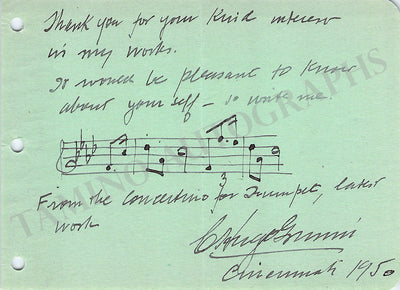 Thank you for your kind interest
in my works.
It would be pleasant to know
about yourself – so write me.
3
From the Concertino for Trumpet, latest
work
Cincinnati 1950
TAMINO AUTOGRAPHS